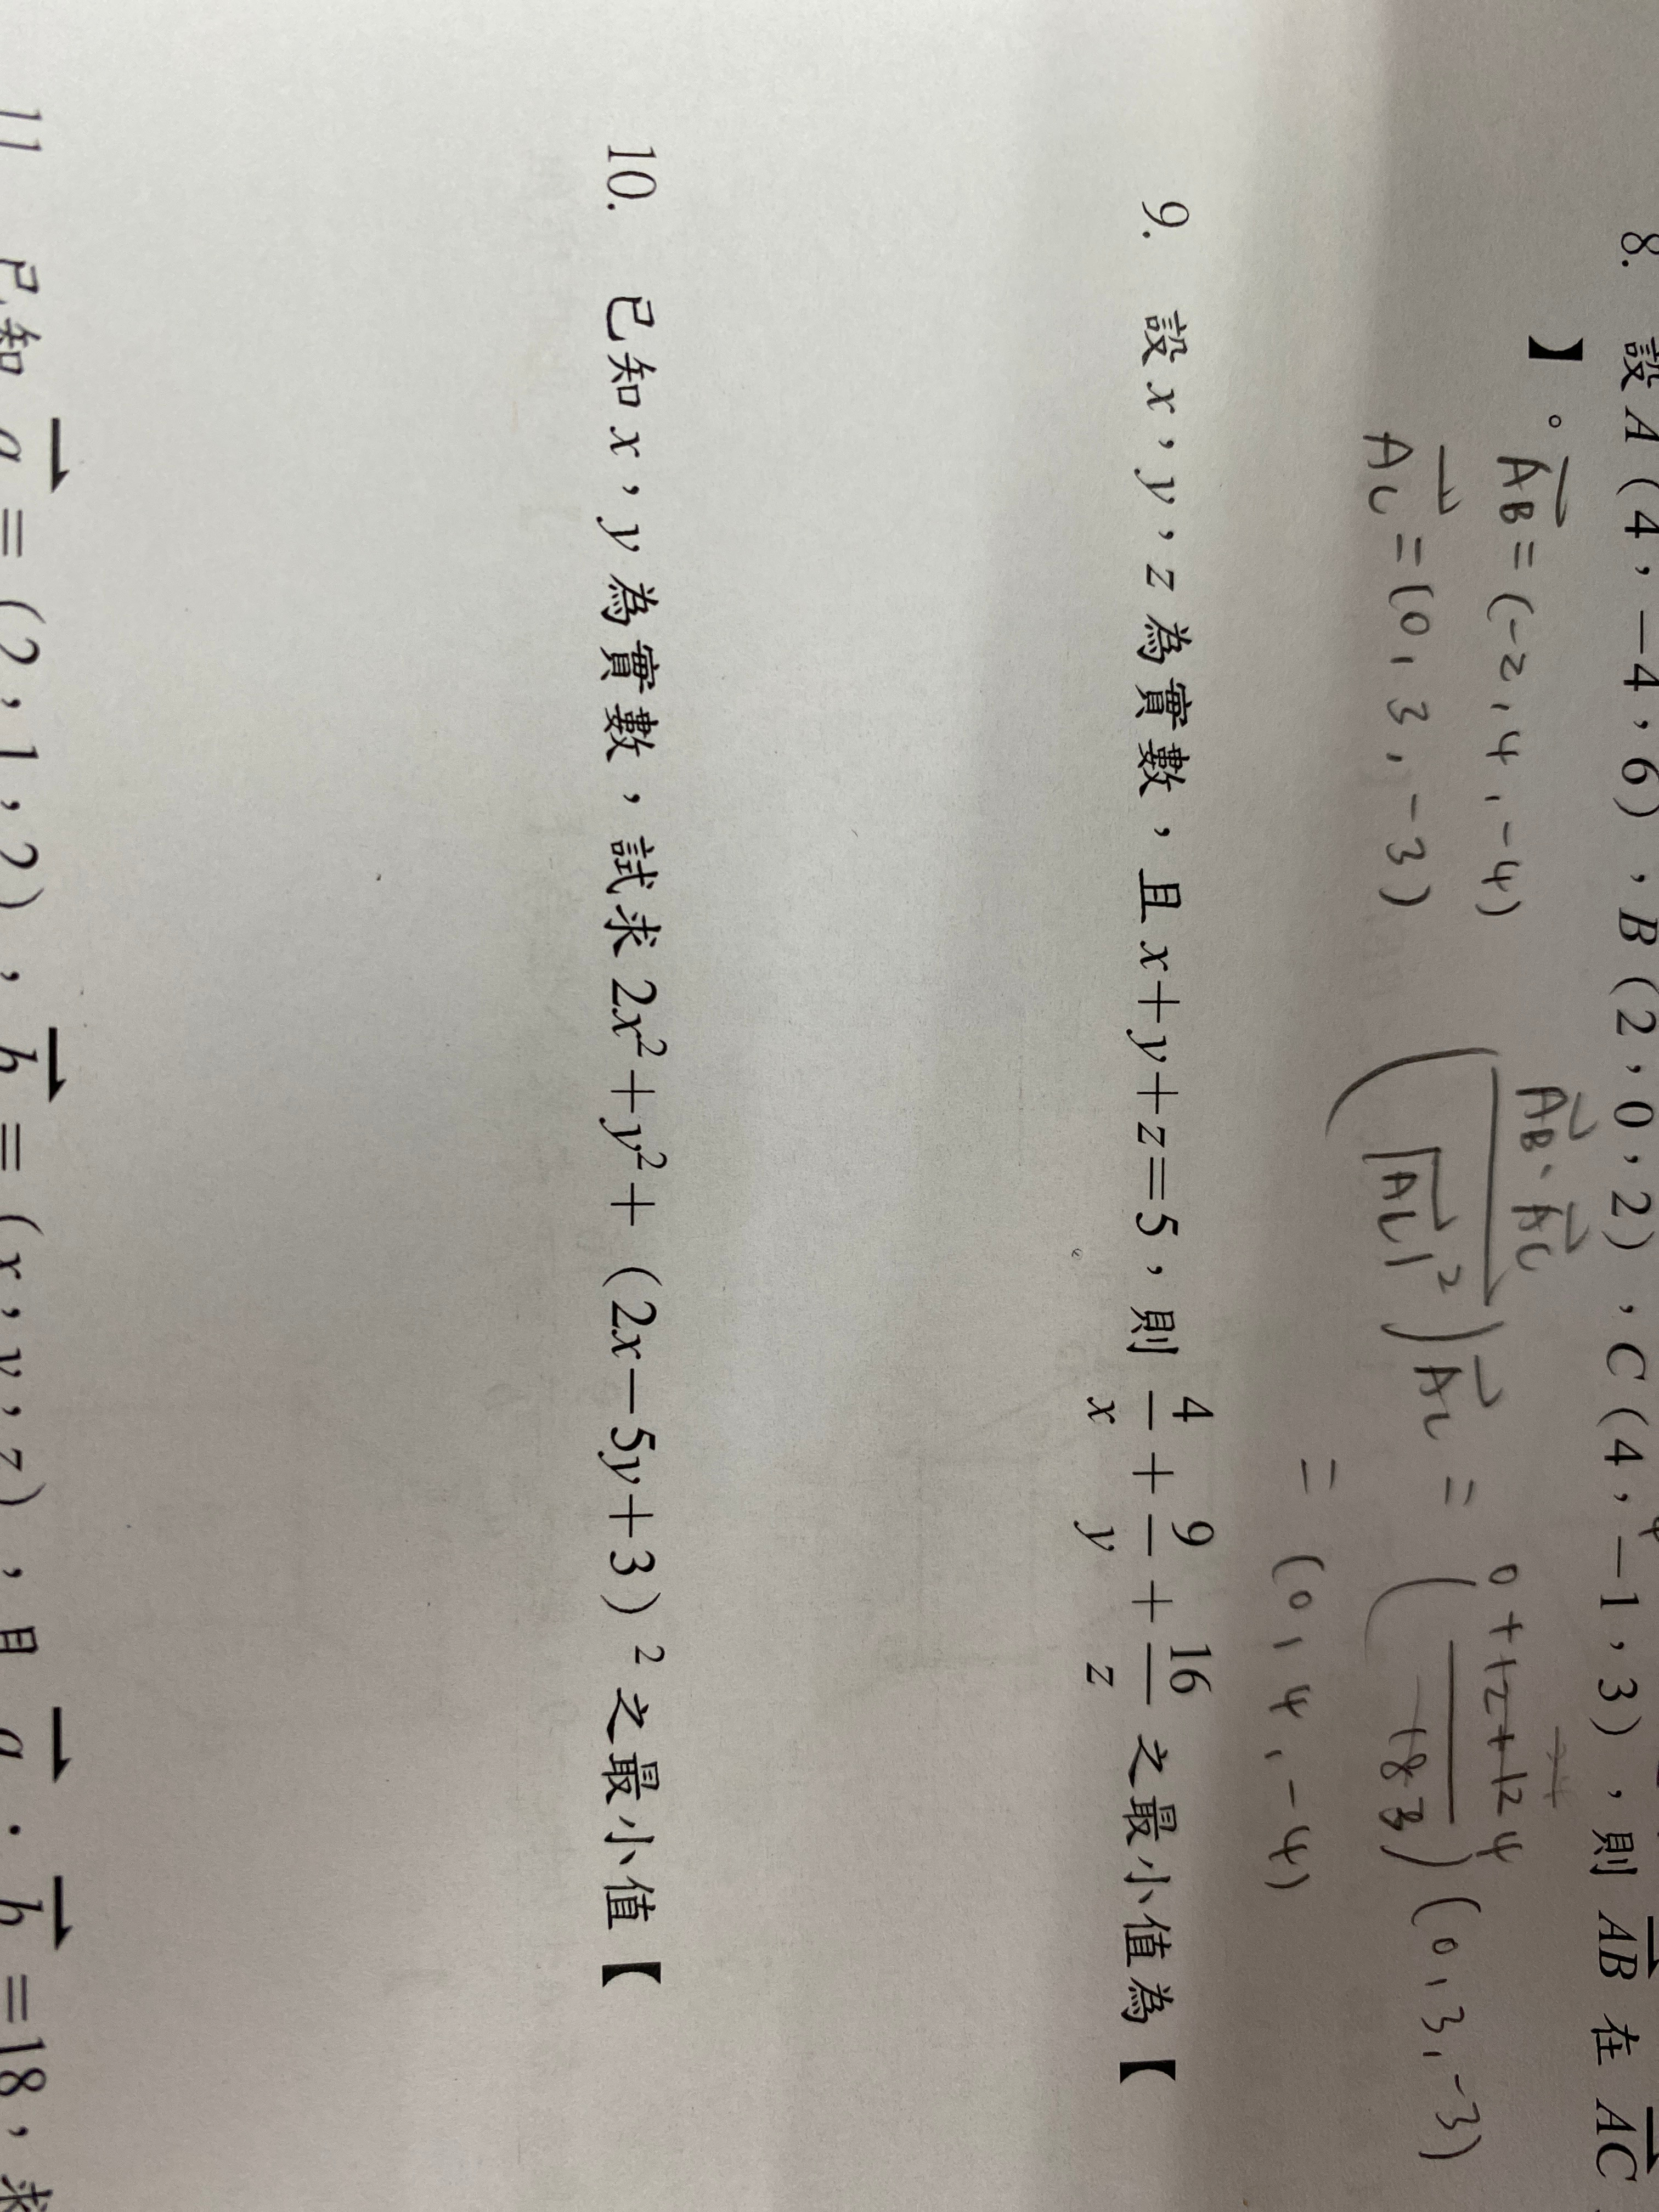 8. 設 A(4,-4,6),B(2,0,2),C(4,-1,3),則 AB 在 AC
】。
AB=(-2,4,-4)
AC=(0,3,-3)
(AB·AC/|AC|²)AC = (0+12+12/18)(0,3,-3)
24 4 3
= (0,4,-4)
9. 設 x,y,z 為實數,且 x+y+z=5,則 4/x + 9/y + 16/z 之最小值為【
10. 已知 x,y 為實數,試求 2x²+y²+(2x-5y+3)² 之最小值【
11 已知 a=(2,1,2),b=(x,y,z),且 a·b=18,求